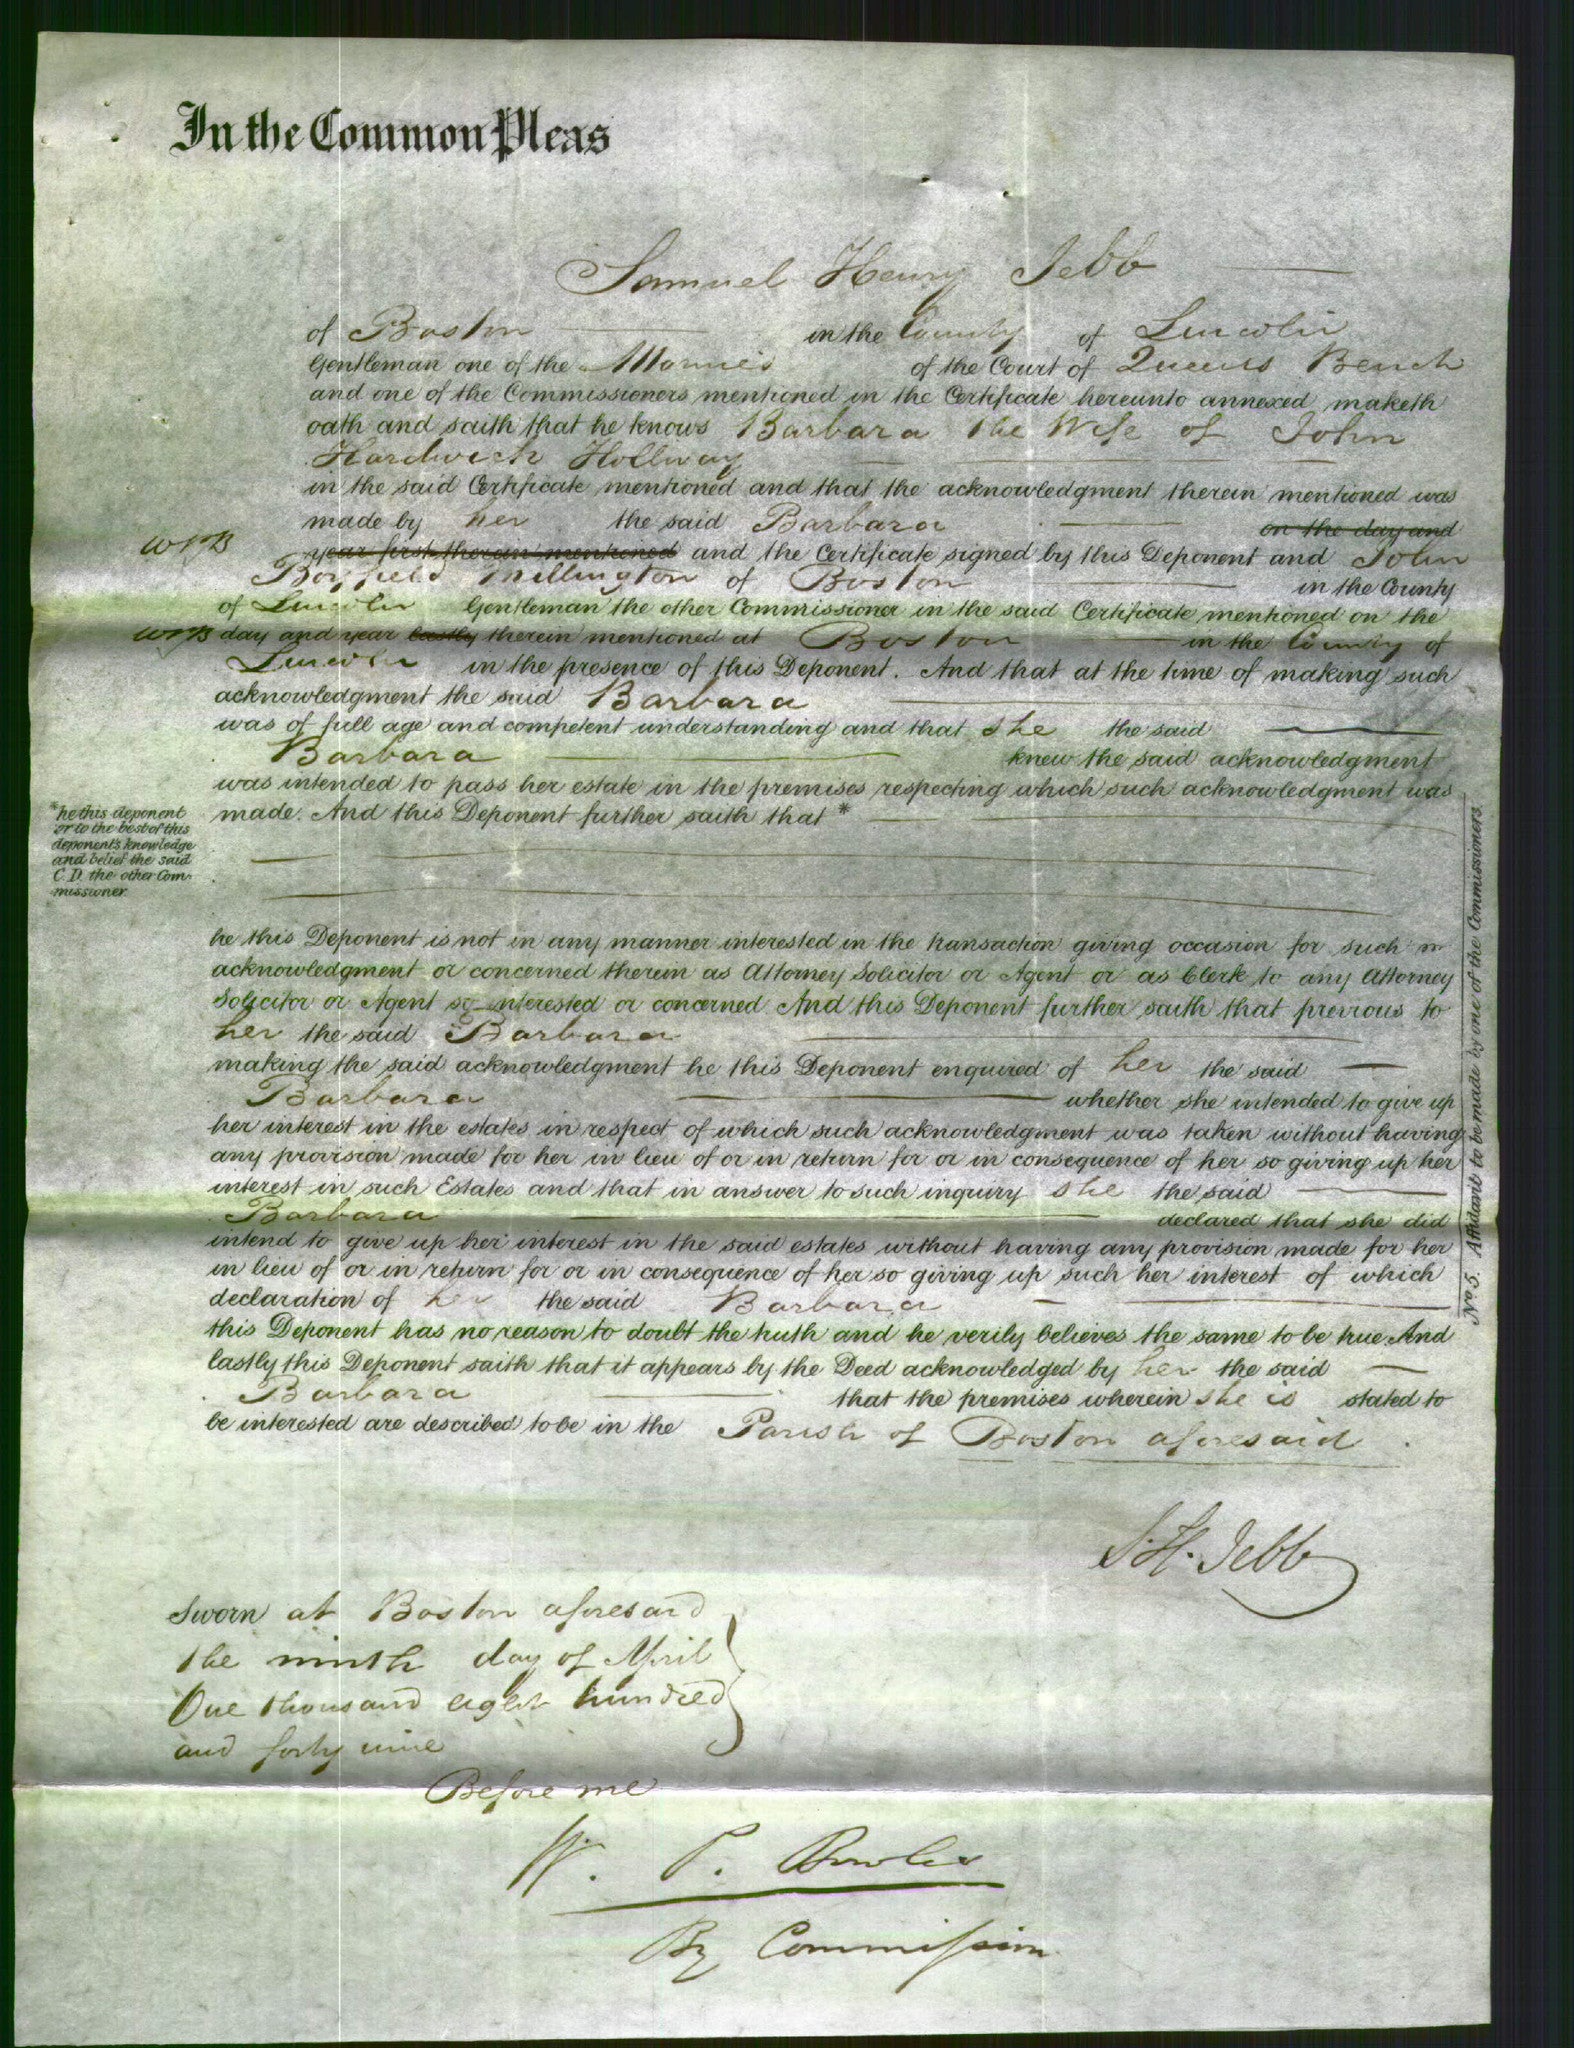 In the Common Pleas
Samuel Henry Jebb
of Boston in the County of Lincoln
Gentleman one of the Attornies of the Court of Queens Bench
and one of the Commissioners mentioned in the Certificate hereunto annexed maketh
oath and saith that he knows Barbara the Wife of John
Hardwick Hollway
in the said Certificate mentioned and that the acknowledgment therein mentioned was
made by her the said Barbara on the day and
year first therein mentioned and the Certificate signed by this Deponent and John
Boyfield Millington of Boston in the County
of Lincoln Gentleman the other Commissioner in the said Certificate mentioned on the
day and year lastly therein mentioned at Boston in the County of
Lincoln in the presence of this Deponent. And that at the time of making such
acknowledgment the said Barbara
was of full age and competent understanding and that she the said
Barbara knew the said acknowledgment
was intended to pass her estate in the premises respecting which such acknowledgment was
made. And this Deponent further saith that *
*he this deponent
or to the best of this
deponents knowledge
and belief the said
C.D. the other Com-
missioner
he this Deponent is not in any manner interested in the transaction giving occasion for such
acknowledgment or concerned therein as Attorney Solicitor or Agent or as Clerk to any Attorney
Solicitor or Agent so interested or concerned And this Deponent further saith that previous to
her the said Barbara
making the said acknowledgment he this Deponent enquired of her the said
Barbara whether she intended to give up
her interest in the estates in respect of which such acknowledgment was taken without having
any provision made for her in lieu of or in return for or in consequence of her so giving up her
interest in such Estates and that in answer to such inquiry she the said
Barbara declared that she did
intend to give up her interest in the said estates without having any provision made for her
in lieu of or in return for or in consequence of her so giving up such her interest of which
declaration of her the said Barbara
this Deponent has no reason to doubt the truth and he verily believes the same to be true. And
lastly this Deponent saith that it appears by the Deed acknowledged by her the said
Barbara that the premises wherein she is stated to
be interested are described to be in the Parish of Boston aforesaid.
No. 5. Affidavit to be made by one of the Commissioners
S. H. Jebb
Sworn at Boston aforesaid
the ninth day of April
One thousand eight hundred
and forty nine
Before me
W. P.
By Commission